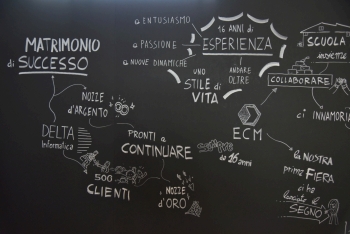 MATRIMONIO
di SUCCESSO
NOZZE
d'ARGENTO
DELTA
Informatica
500
CLIENTI
PRONTI a
CONTINUARE
NOZZE
d'ORO
ENTUSIASMO
PASSIONE
NUOVE DINAMICHE
16 ANNI di
ESPERIENZA
UNO
STILE di
VITA
ANDARE
OLTRE
ECM
SEMPRE
da 16 anni
SCUOLA
insieme
COLLABORARE
ci INNAMORIA
la NOSTRA
prima FIERA
ci ha
lasciato il
SEGNO